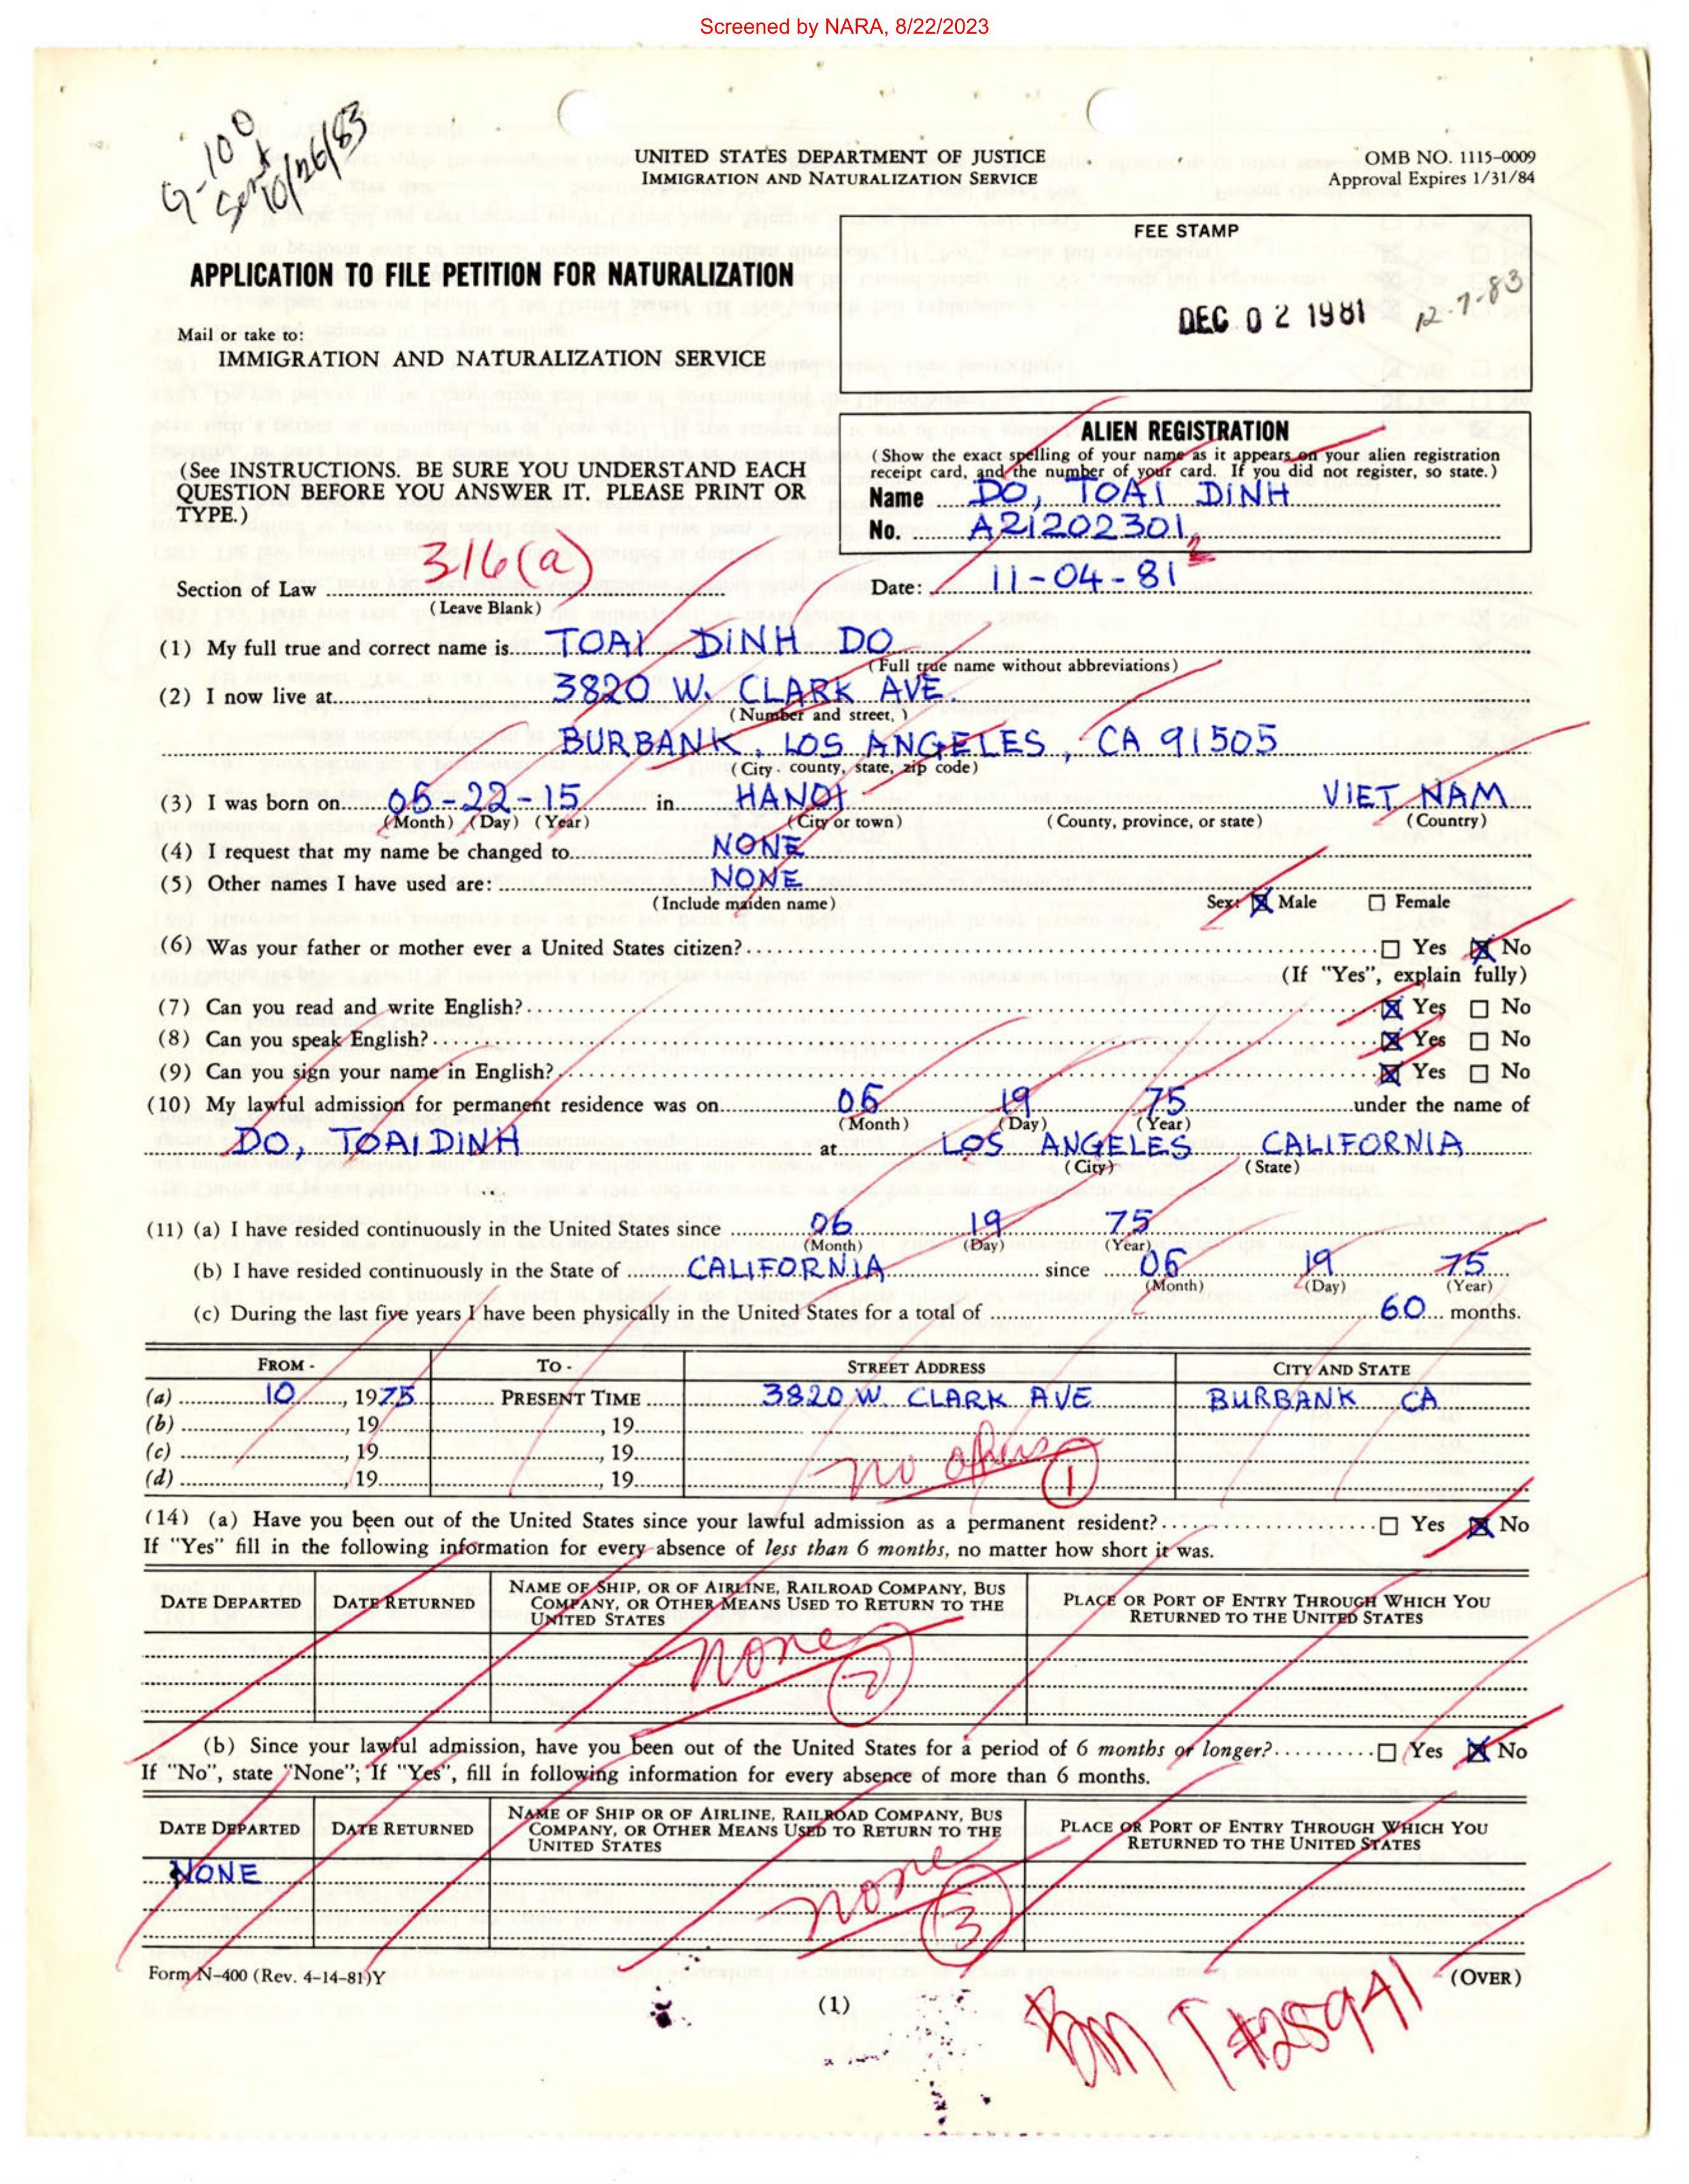 Screened by NARA, 8/22/2023
G-100
Sent
10/26/83
UNITED STATES DEPARTMENT OF JUSTICE
IMMIGRATION AND NATURALIZATION SERVICE
OMB NO. 1115-0009
Approval Expires 1/31/84
FEE STAMP
DEC 02 1981 12-7-83
APPLICATION TO FILE PETITION FOR NATURALIZATION
Mail or take to:
IMMIGRATION AND NATURALIZATION SERVICE
ALIEN REGISTRATION
(Show the exact spelling of your name as it appears on your alien registration
receipt card, and the number of your card. If you did not register, so state.)
Name DO, TOAI DINH
No. A21202301
(See INSTRUCTIONS. BE SURE YOU UNDERSTAND EACH
QUESTION BEFORE YOU ANSWER IT. PLEASE PRINT OR
TYPE.)
Section of Law 316(a)
(Leave Blank)
Date: 11-04-81
(1) My full true and correct name is TOAI DINH DO
(Full true name without abbreviations)
(2) I now live at 3820 W. CLARK AVE.
(Number and street, )
BURBANK, LOS ANGELES, CA 91505
(City, county, state, zip code)
(3) I was born on 06-22-15 in HANOI VIET NAM
(Month) (Day) (Year) (City or town) (County, province, or state) (Country)
(4) I request that my name be changed to NONE
(5) Other names I have used are: NONE
(Include maiden name) Sex: ☒ Male ☐ Female
(6) Was your father or mother ever a United States citizen? ☐ Yes ☒ No
(If "Yes", explain fully)
(7) Can you read and write English? ☒ Yes ☐ No
(8) Can you speak English? ☒ Yes ☐ No
(9) Can you sign your name in English? ☒ Yes ☐ No
(10) My lawful admission for permanent residence was on 06 19 75 under the name of
(Month) (Day) (Year)
DO, TOAI DINH at LOS ANGELES CALIFORNIA
(City) (State)
(11) (a) I have resided continuously in the United States since 06 19 75
(Month) (Day) (Year)
(b) I have resided continuously in the State of CALIFORNIA since 06 19 75
(Month) (Day) (Year)
(c) During the last five years I have been physically in the United States for a total of 60 months.
FROM - TO - STREET ADDRESS CITY AND STATE
(a) 10, 1975 PRESENT TIME 3820 W. CLARK AVE BURBANK CA
(b) , 19 , 19
(c) , 19 , 19
(d) , 19 , 19
no others
1
(14) (a) Have you been out of the United States since your lawful admission as a permanent resident? ☐ Yes ☒ No
If "Yes" fill in the following information for every absence of less than 6 months, no matter how short it was.
DATE DEPARTED DATE RETURNED NAME OF SHIP, OR OF AIRLINE, RAILROAD COMPANY, BUS COMPANY, OR OTHER MEANS USED TO RETURN TO THE UNITED STATES PLACE OR PORT OF ENTRY THROUGH WHICH YOU RETURNED TO THE UNITED STATES
none
2
(b) Since your lawful admission, have you been out of the United States for a period of 6 months or longer? ☐ Yes ☒ No
If "No", state "None"; If "Yes", fill in following information for every absence of more than 6 months.
DATE DEPARTED DATE RETURNED NAME OF SHIP OR OF AIRLINE, RAILROAD COMPANY, BUS COMPANY, OR OTHER MEANS USED TO RETURN TO THE UNITED STATES PLACE OR PORT OF ENTRY THROUGH WHICH YOU RETURNED TO THE UNITED STATES
NONE
none
3
Form N-400 (Rev. 4-14-81)Y
(OVER)
(1)
#28941